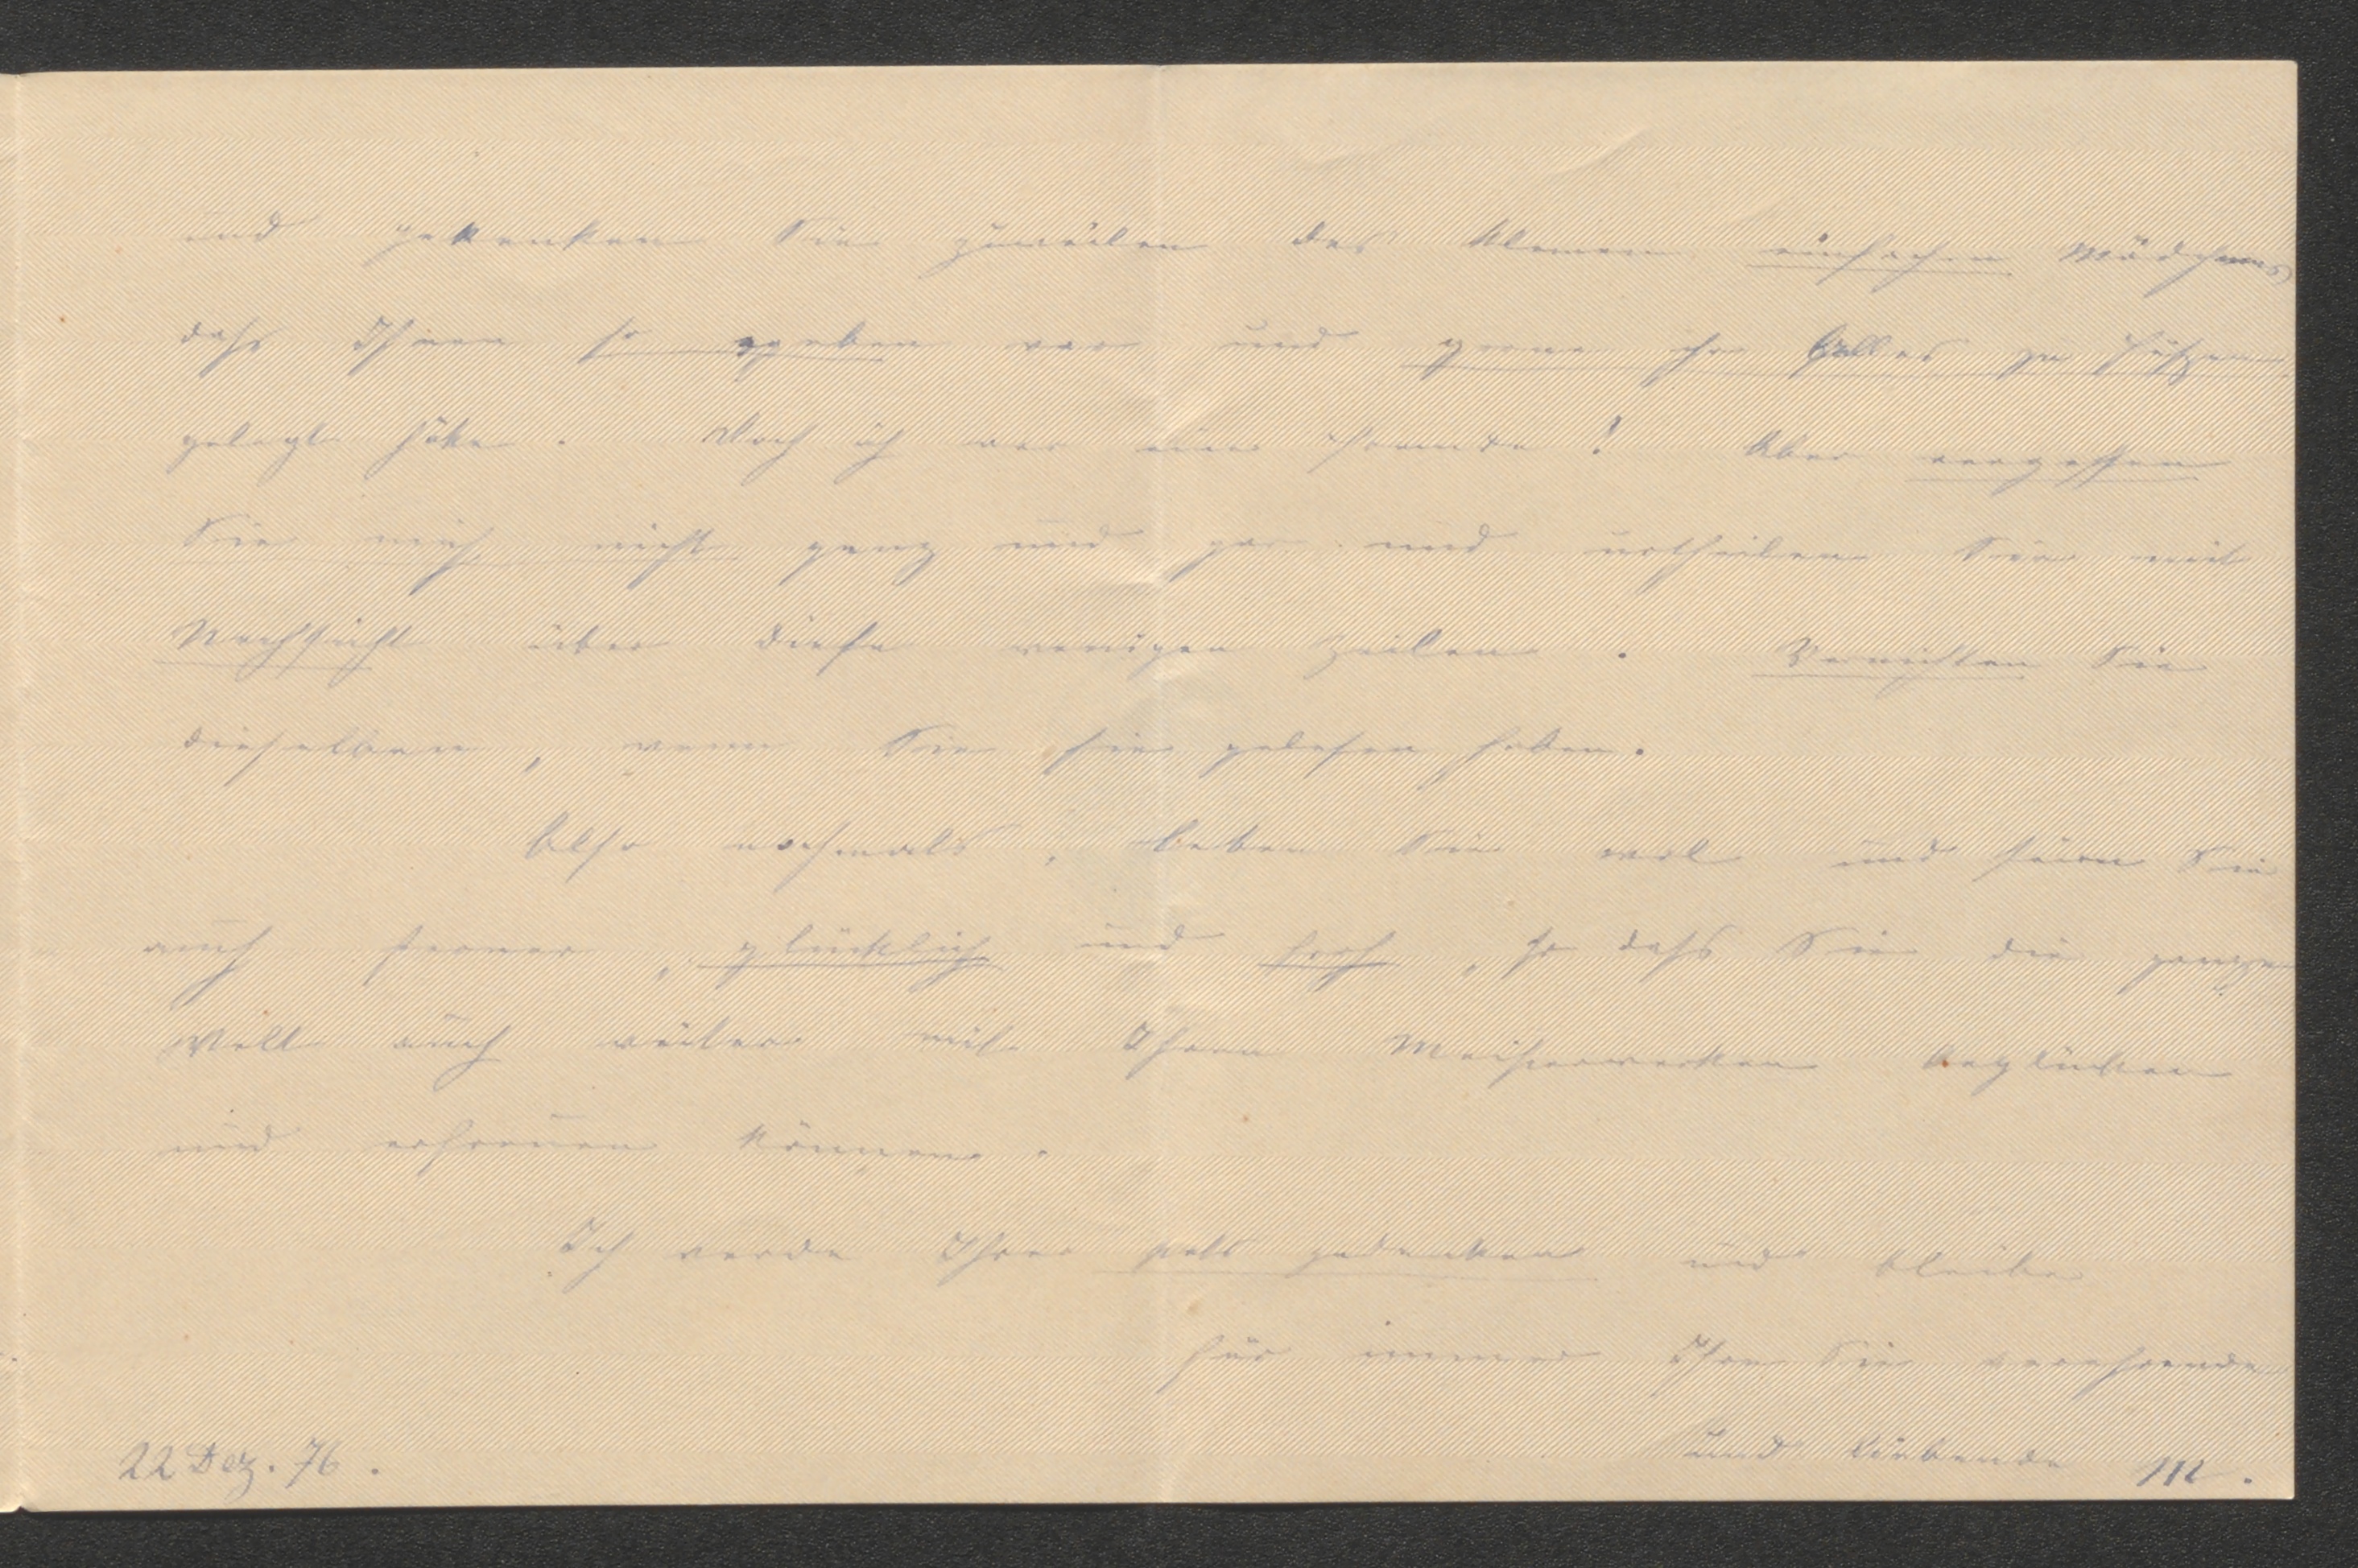 und gedenken Sie zuweilen des kleinen einfachen Mädchens
dass Ihnen so ergeben war und gerne ihr Alles zu Füßen
gelegt hätte. Doch ich war eine Fremde! Aber vergessen
Sie mich nicht ganz und gar und urtheilen Sie mit
Nachsicht über diese wenigen Zeilen. Vernichten Sie
dieselben, wenn Sie sie gelesen haben.
Also nochmals, leben Sie wol und seien Sie
auch ferner, glücklich und froh, so dass Sie die ganze
Welt auch weiter mit Ihren Meisterwerken beglücken
und erfreuen können.
Ich werde Ihrer stets gedenken und bleibe
für immer Ihre Sie verehrende
und liebende M.
22 Dez. 76.